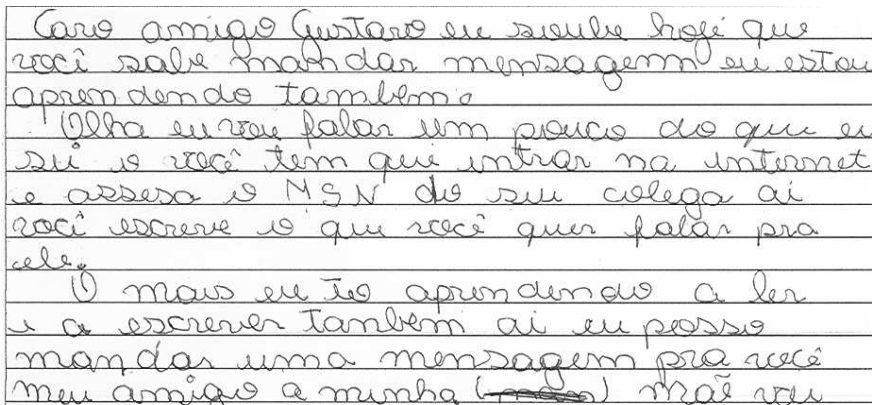 Caro amigo Gustavo eu soube hoje que
você sabe mandar mensagem eu estou
aprendendo também.
Olha eu vou falar um pouco do que eu
sei o você tem que intrar na internet
e assesa o MSN do seu colega ai
você escreve o que você quer falar pra
ele.
O mais eu to aprendendo a ler
e a escrever tanbem ai eu posso
mandar uma mensagem pra você
meu amigo a minha mãe vou